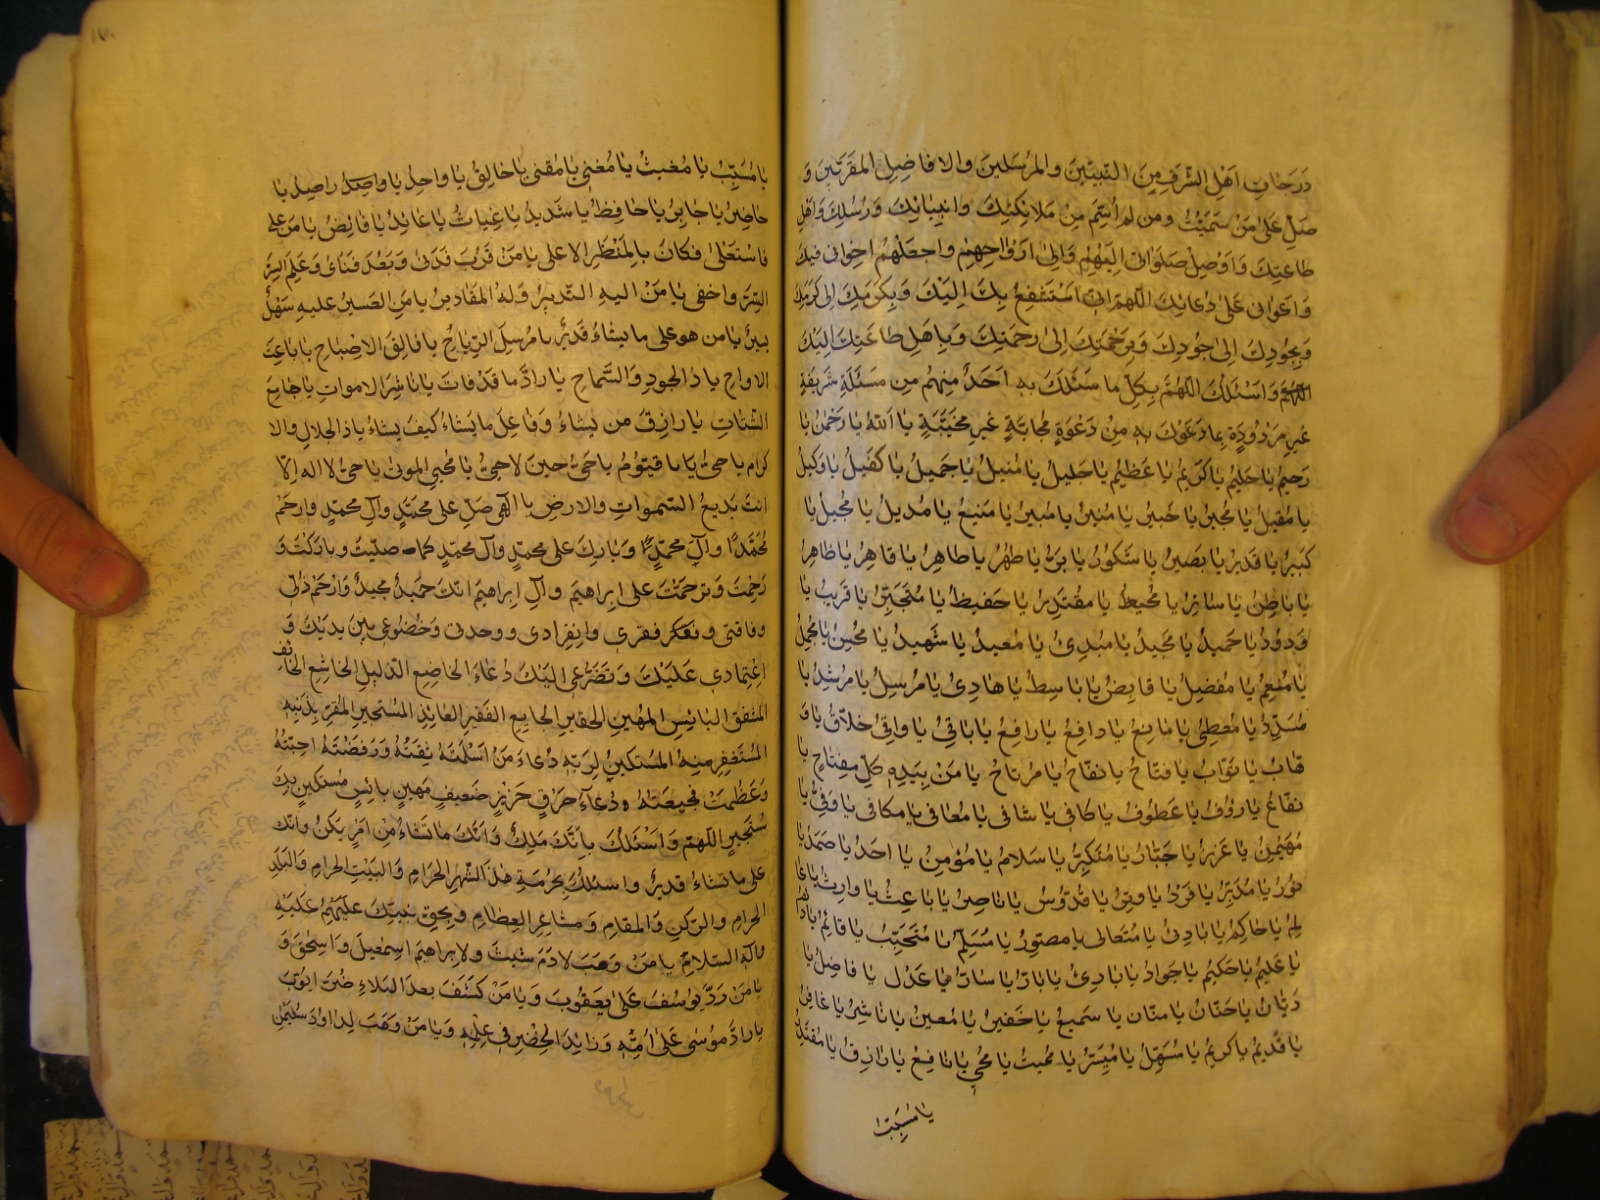 دَرَجَاتِ اَهْلِ الشَّرَفِ مِنَ النَّبِيّينَ وَالمُرسَلينَ وَالافاضِلِ المُقَرَّبينَ وَ
صَلِّ عَلىٰ مَنْ سَمَّيْتُ وَمن لم اُسَمِّ مِنْ مَلائِكَتِكَ وانبيائكَ وَرُسُلِكَ وَاَهْلِ
طاعتِكَ وَاَوْصِلْ صَلَوَاتى اِلَيْهِمْ وَاِلىٰ اَرْوَاحِهِمْ واجعَلْهُمْ اخوانى فيكَ
وَاَعْوانى عَلىٰ دُعائِكَ اللّهمّ انى اَسْتَشفِعُ بِكَ اِلَيْكَ وَبِكَرَمِكَ اِلى كَرَمِكَ
وَبِجُودِكَ اِلىٰ جُودِكَ وَبِرَحْمَتِكَ اِلىٰ رحمَتِكَ وَبِاَهلِ طاعَتِكَ اِلَيْكَ
اللّهُمَّ وَاَسْئَلُكَ اللّهُمَّ بِكلّ ما سَئَلَكَ بهِ اَحَدٌ مِنهُم مِن مَسئَلَةٍ شَريفَةٍ
غيرِ مَرْدُودَةٍ بِما دَعَوْكَ بهِ مِنْ دَعْوَةٍ مُجابَةٍ غيرِ مخيَّبَةٍ يا اَللّهُ يا رَحْمٰنُ يا
رَحيمُ يا حَليمُ يا كَريمُ يا عَظيمُ يا جَليلُ يا مُنيلُ يا جَميلُ يا كَفيلُ يا وَكيلُ
يا مُقيلُ يا مُجيرُ يا خَبيرُ يا مُنيرُ يا مُبيرُ يا مَنيعُ يا مُديلُ يا مُحيلُ يا
كَبيرُ يا قَديرُ يا بَصيرُ يا شَكورُ يا بَرُّ يا طُهْرُ يا طاهِرُ يا قاهِرُ يا ظاهِرُ
يا باطِنُ يا ساتِرُ يا مُحيطُ يا مُقتَدِرُ يا حَفيظُ يا مُتَجَبِّرُ يا قَريبُ يا
وَدُودُ يا حَميدُ يا مَجيدُ يا مُبْدِئُ يا مُعيدُ يا شَهيدُ يا مُحْسِنُ يا مُجمِلُ
يا مُنعِمُ يا مُفضِلُ يا قابِضُ يا باسِطُ يا هادِى يا مُرسِلُ يا مُرشِدُ يا
مُسَدِّدُ يا مُعْطِى يا مانِعُ يا دافِعُ يا رافِعُ يا باقى يا واقى خلّاقُ يا وَ
هّابُ يا تَوّابُ يا فتّاحُ يا نفّاحُ يا مُرتاحُ يا مَنْ بِيَدِه كلّ مِفتاحٍ يا
نَفّاعُ يا رؤفُ يا عَطوفُ يا كافى يا شافى يا مُعافى يا مكافى يا وَفىُّ يا
مُهَيْمِنُ يا عَزيزُ يا جَبّارُ يا مُتَكَبِّرُ يا سَلامُ يا مُؤمِنُ يا اَحَدُ يا صَمَدُ يا
نورُ يا مُدَبِّرُ يا فَرْدُ يا وِترُ يا قُدّوسُ يا ناصِرُ يا باعِثُ يا وارِثُ يا عا
لِمُ يا حاكِمُ يا بادِئُ يا مُتَعالى يا مصوّرُ يا مُسَلِّمُ يا مُتَحَبِّبُ يا قائِمُ يا دائم
يا عَليمُ يا حَكيمُ يا جَوادُ يا بارِئُ يا بارُّ يا سارُّ يا عَدْل يا فاصِلُ يا
دَيّانُ يا حَنّانُ يا منّان يا سَميعُ يا خَفيرُ يا مُعينُ يا ناشِرُ يا غافِرُ
يا قَديمُ يا كريمُ يا مُسَهِّلُ يا مُيَسِّرُ يا مميتُ يا مُحيى يا نافِعُ يا رازِقُ يا مُقتَدِرُ
يا مُسَبِّبُ
يا مُسَبِّبُ يا مُغيثُ يا مُغنى يا مُقنى يا خالِقُ يا واحِدُ يا واصِدُ راصِدُ يا
حاضِرُ يا جابِرُ يا حافِظُ يا شَديدُ يا غِياثُ يا عائِدُ يا قابِضُ يا مَن علا
فاسْتَعْلىٰ فكانَ بالمَنْظَرِ الاعلى يا مَنْ قَرُبَ فَدَنى وَبَعُدَ فَنَأى وَعَلِمَ السِرَّ
السِرَّ واخفى يا مَنْ اليهِ التّدبيرُ وَلهُ المَقاديرُ يا مَنِ العَسيرُ عليهِ سَهْلٌ
يَسيرٌ يا من هو على ما يشاءُ قَديرٌ يا مُرسِلَ الرّياحِ يا فالِقَ الاصباحِ يا باعِثَ
الارواحِ يا ذالجودِ وَالسَّماحِ يا رادَّ ما قَدْ فاتَ يا ناشِرَ الامواتِ يا جامِعَ
الشّتاتِ يا رازِقَ من يَشاءُ وَفاعِلَ ما يَشاءُ كيفَ يشاءُ يا ذالجلالِ والا
كرام يا حىُّ يا قيّومُ يا حَىُّ حينَ لا حىُّ يا مُحيِي الموتىٰ يا حىُّ لا اله اِلّا
انتَ بَديعُ السّمواتِ والارضِ يا اِلهى صَلِّ على مُحمّدٍ وآلِ محمّدٍ وارحَمْ
مُحَمّدًا وآلَ محمّدٍ وَبارِكْ على محمدٍ وآلِ محمّدٍ كما صلّيتَ وباركتَ وَ
رَحِمْتَ وَتَرحّمْتَ على ابراهيمَ وآلِ ابراهيمَ انّكَ حَميدٌ مجيدٌ وَارْحَمْ ذُلّى
وفاقتى وفقرى وانفِرادى ووحدتى وَخُضُوعى بينَ يديكَ وَ
اِعْتِمادى عَلَيْكَ وَتَضَرُّعى اليْكَ اَدْعُوكَ دُعاءَ الخاضِعِ الذّليلِ الخاشِعِ الخائِفِ
المُشفِقِ البائسِ المَهينِ الحقيرِ الجايعِ الفَقيرِ العائِذِ المُستجيرِ المُقِرِّ بذَنْبِه
المُستَغفِرِ مِنهُ المُستكينِ لِرَبّهِ دُعاءَ مَنْ اَسْلَمَتْهُ ثِقَتُهُ وَرَفَضَتْهُ احِبّتُهُ
وَعَظُمَتْ فجيعَتُهُ دُعاءَ حَرِقٍ حَزينٍ ضَعيفٍ مَهينٍ بائسٍ مُستكينٍ بِكَ
مُسْتَجيرٍ اللّهمّ وَاَسْئَلُكَ بِاَنّكَ مَليكٌ وَاَنّكَ ما تَشاءُ مِنْ اَمْرٍ يَكُنْ وانّكَ
على ما تَشاءُ قديرٌ واسئلكَ بِحُرْمَةِ هٰذَا الشَّهرِ الحَرامِ وَالبَيْتِ الحرامِ وَالبَلَدِ
الحرامِ والرّكنِ وَالمَقامِ وَمَشاعِرِ العِظامِ وبِحَقِّ نبيّكَ عليهِ
وآلهِ السّلامُ يا مَنْ وَهَبَ لادَمَ شيثَ ولابراهيمَ اسمعيلَ واسحقَ وَ
يا مَنْ رَدَّ يوسُفَ عَلىٰ يَعقوبَ وَيا مَنْ كَشَفَ بعدَ البلاءِ ضُرَّ ايّوبَ
يا رادَّ مُوسٰى عَلىٰ اُمّهِ وَزائِدَ الخِضْرِ فى عِلمِهِ وَيا مَنْ وَهَبَ لِداودَ سُليمٰنَ